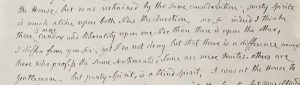 the House, but was restrained by the same consideration, party Spirit
is much alive upon both Sides the Question, indeed I think
there is more candor and liberality upon one Side than there is upon the other,
I differ from you Sir, yet I do not deny but that there is a difference among
those who profess the same Sentiments, some are mere bitter, others are
Gentlemen. but party Spirit, is a blind Spirit. I was at the House to